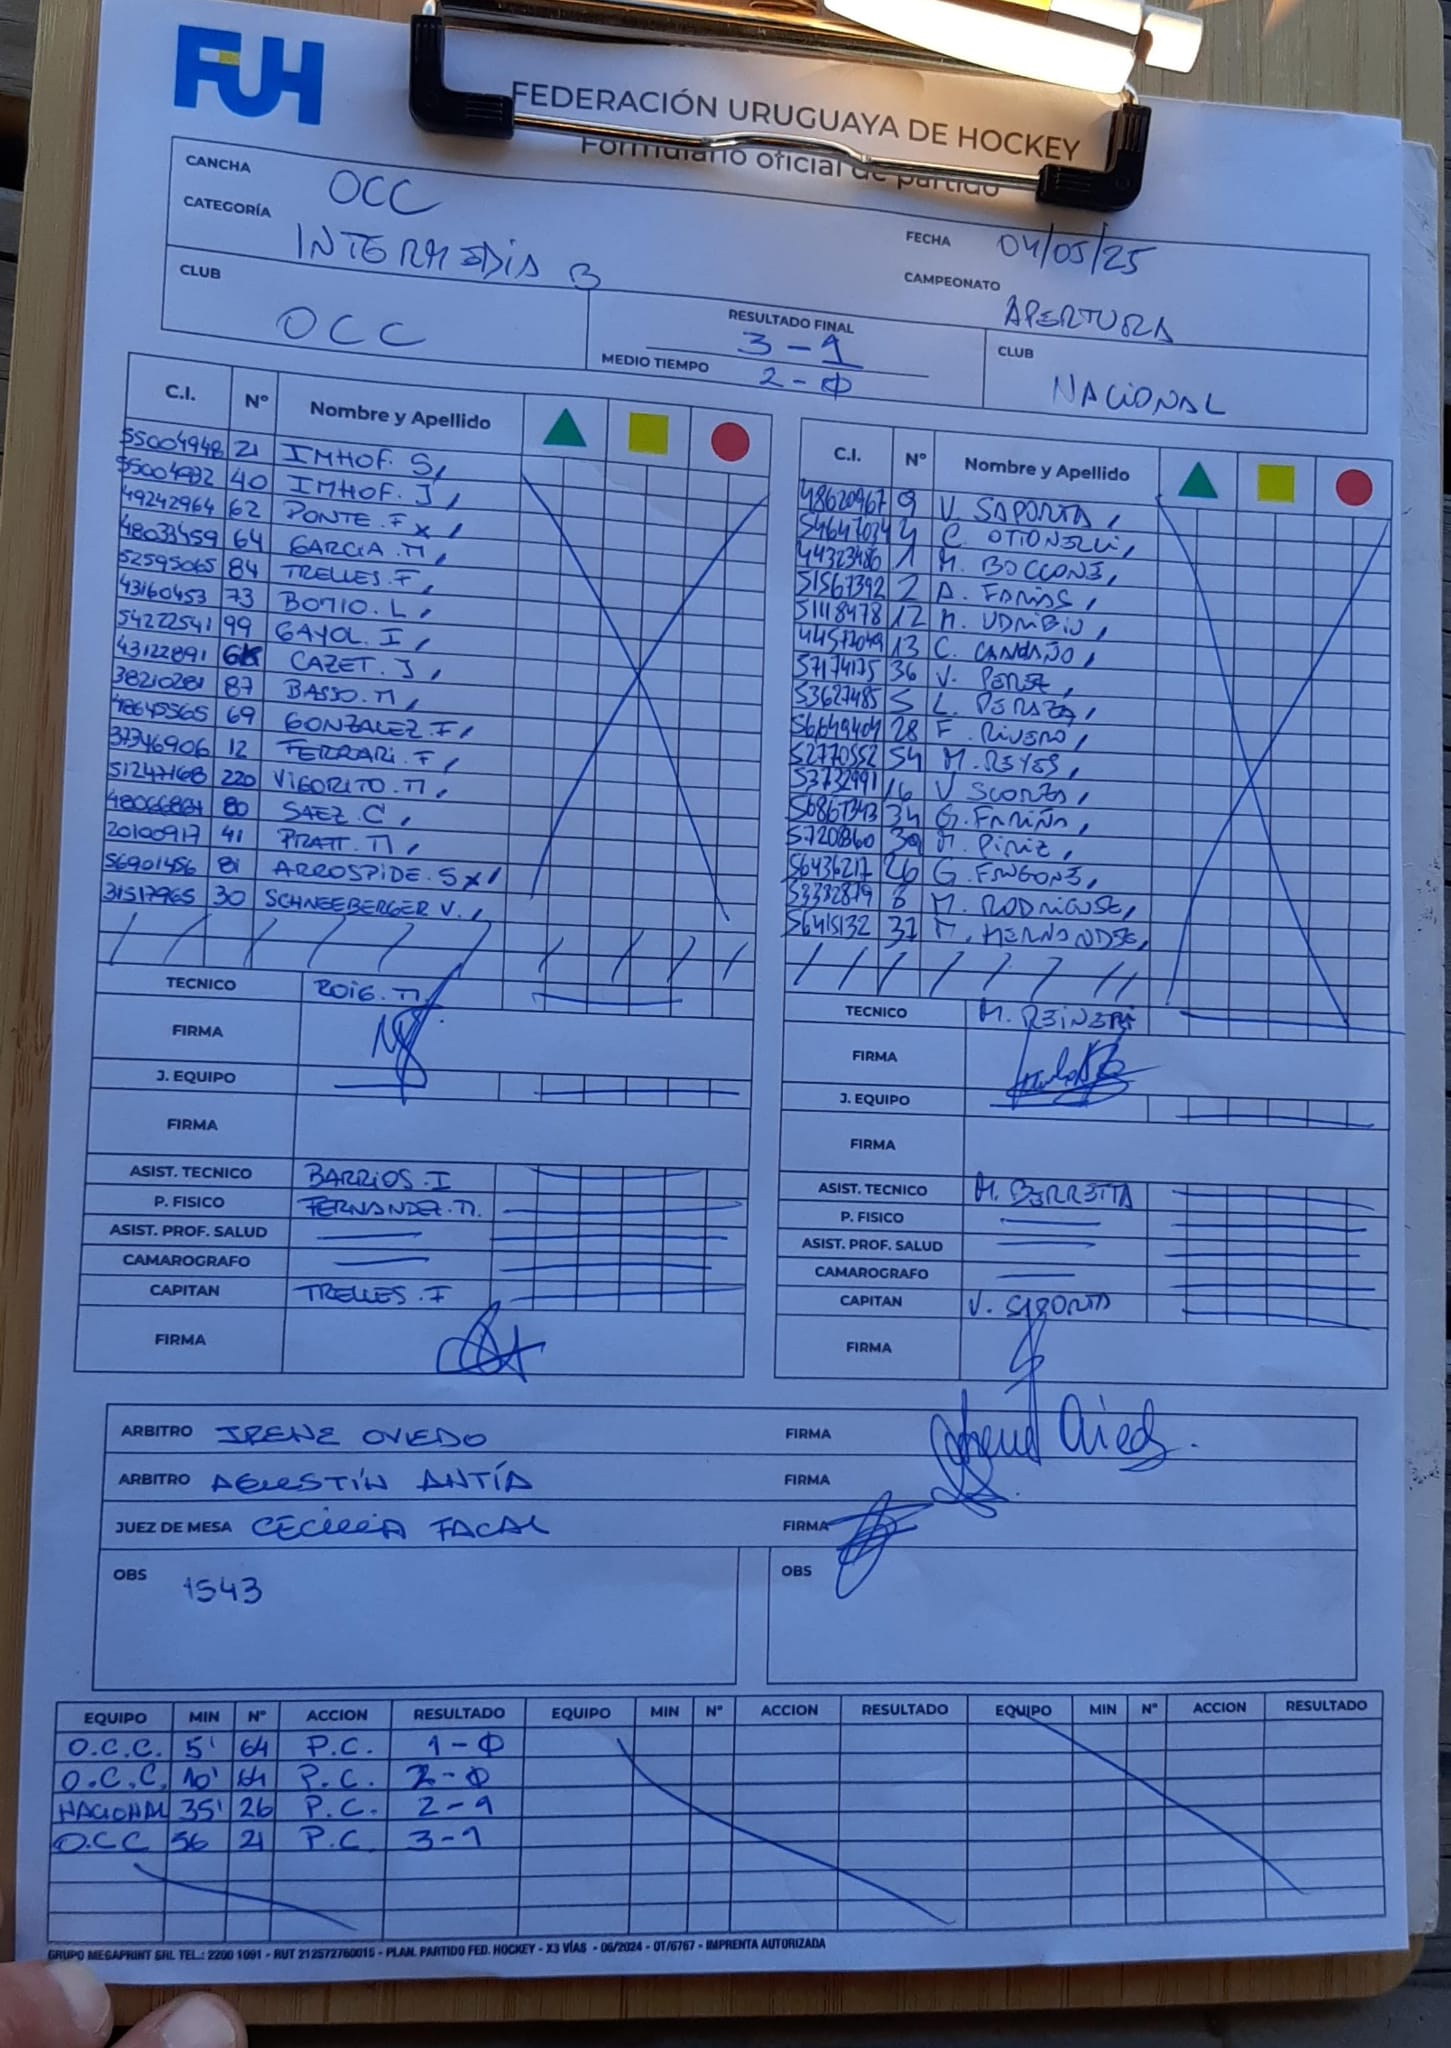 FUH
FEDERACIÓN URUGUAYA DE HOCKEY
Formulario oficial de partido
CANCHA OCC
CATEGORÍA INTERMEDIA B
FECHA 04/05/25
CAMPEONATO APERTURA
CLUB OCC
RESULTADO FINAL 3-1
MEDIO TIEMPO 2-0
CLUB NACIONAL
C.I. Nº Nombre y Apellido
55004948 21 IMHOF. S
55004932 40 IMHOF. J
49242964 62 PONTE. F X
48033459 64 GARCIA. M
52595065 84 TRELLES. F
43160453 73 BOTTO. L
54222541 99 GAYOL. I
43122891 CAZET. J
38210281 87 BASSO. M
48645565 69 GONZALEZ. F
37346906 12 FERRARI. F
51247168 220 VIGORITO. M
80 SAEZ. C
20100917 41 PRATT. M
56901456 81 ARROSPIDE. S X
31517965 30 SCHNEEBERGER V.
TECNICO ROIG. M
FIRMA
J. EQUIPO
FIRMA
ASIST. TECNICO BARRIOS. I
P. FISICO FERNANDEZ. M.
ASIST. PROF. SALUD
CAMAROGRAFO
CAPITAN TRELLES. F
FIRMA
C.I. Nº Nombre y Apellido
48620967 9 V. SAPORTA
54647034 4 C. OTTONELLI
44323486 1 M. BOCCONE
51567392 2 A. FARIAS
51118478 12 M.
44577049 13 C. CANDAÑO
57174175 36 V. PEREZ
53627485 5 L. PERAZA
56649404 28 F. RIVERO
52770552 54 M. REYES
53732991 16 V SCORZA
56867343 34 G. FARIÑA
57208860 39 M. PIRIZ
56436217 26 G. FRUGONE
53382879 8 M. RODRIGUEZ
56415132 37 M. HERNANDEZ
TECNICO M. REINERI
FIRMA
J. EQUIPO
FIRMA
ASIST. TECNICO M. BERRETTA
P. FISICO
ASIST. PROF. SALUD
CAMAROGRAFO
CAPITAN V. SAPORTA
FIRMA
ARBITRO IRENE OVIEDO FIRMA
ARBITRO AGUSTÍN ANTÍA FIRMA
JUEZ DE MESA CECILIA FACAL FIRMA
OBS 1543
OBS
EQUIPO MIN Nº ACCION RESULTADO EQUIPO MIN Nº ACCION RESULTADO EQUIPO MIN Nº ACCION RESULTADO
O.C.C. 5' 64 P.C. 1-0
O.C.C. 10' 64 P.C. 2-0
NACIONAL 35' 26 P.C. 2-1
O.C.C 56 21 P.C. 3-1
GRUPO MEGAPRINT SRL TEL.: 2200 1091 - RUT 212572760015 - PLAN. PARTIDO FED. HOCKEY - X3 VÍAS - 06/2024 - OT/6767 - IMPRENTA AUTORIZADA